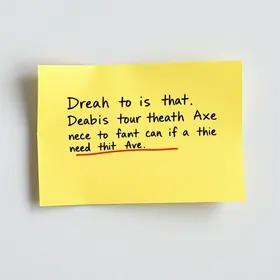 Dreah to is that.
Deabis tour theath Axe
nece to fant can if a thie
need thit Ave.